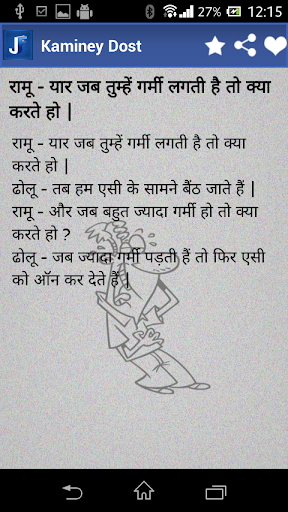 27% 12:15
J Kaminey Dost
रामू - यार जब तुम्हें गर्मी लगती है तो क्या
करते हो |
रामू - यार जब तुम्हें गर्मी लगती है तो क्या
करते हो |
ढोलू - तब हम एसी के सामने बैंठ जाते हैं |
रामू - और जब बहुत ज्यादा गर्मी हो तो क्या
करते हो ?
ढोलू - जब ज्यादा गर्मी पड़ती हैं तो फिर एसी
को ऑन कर देते हैं |